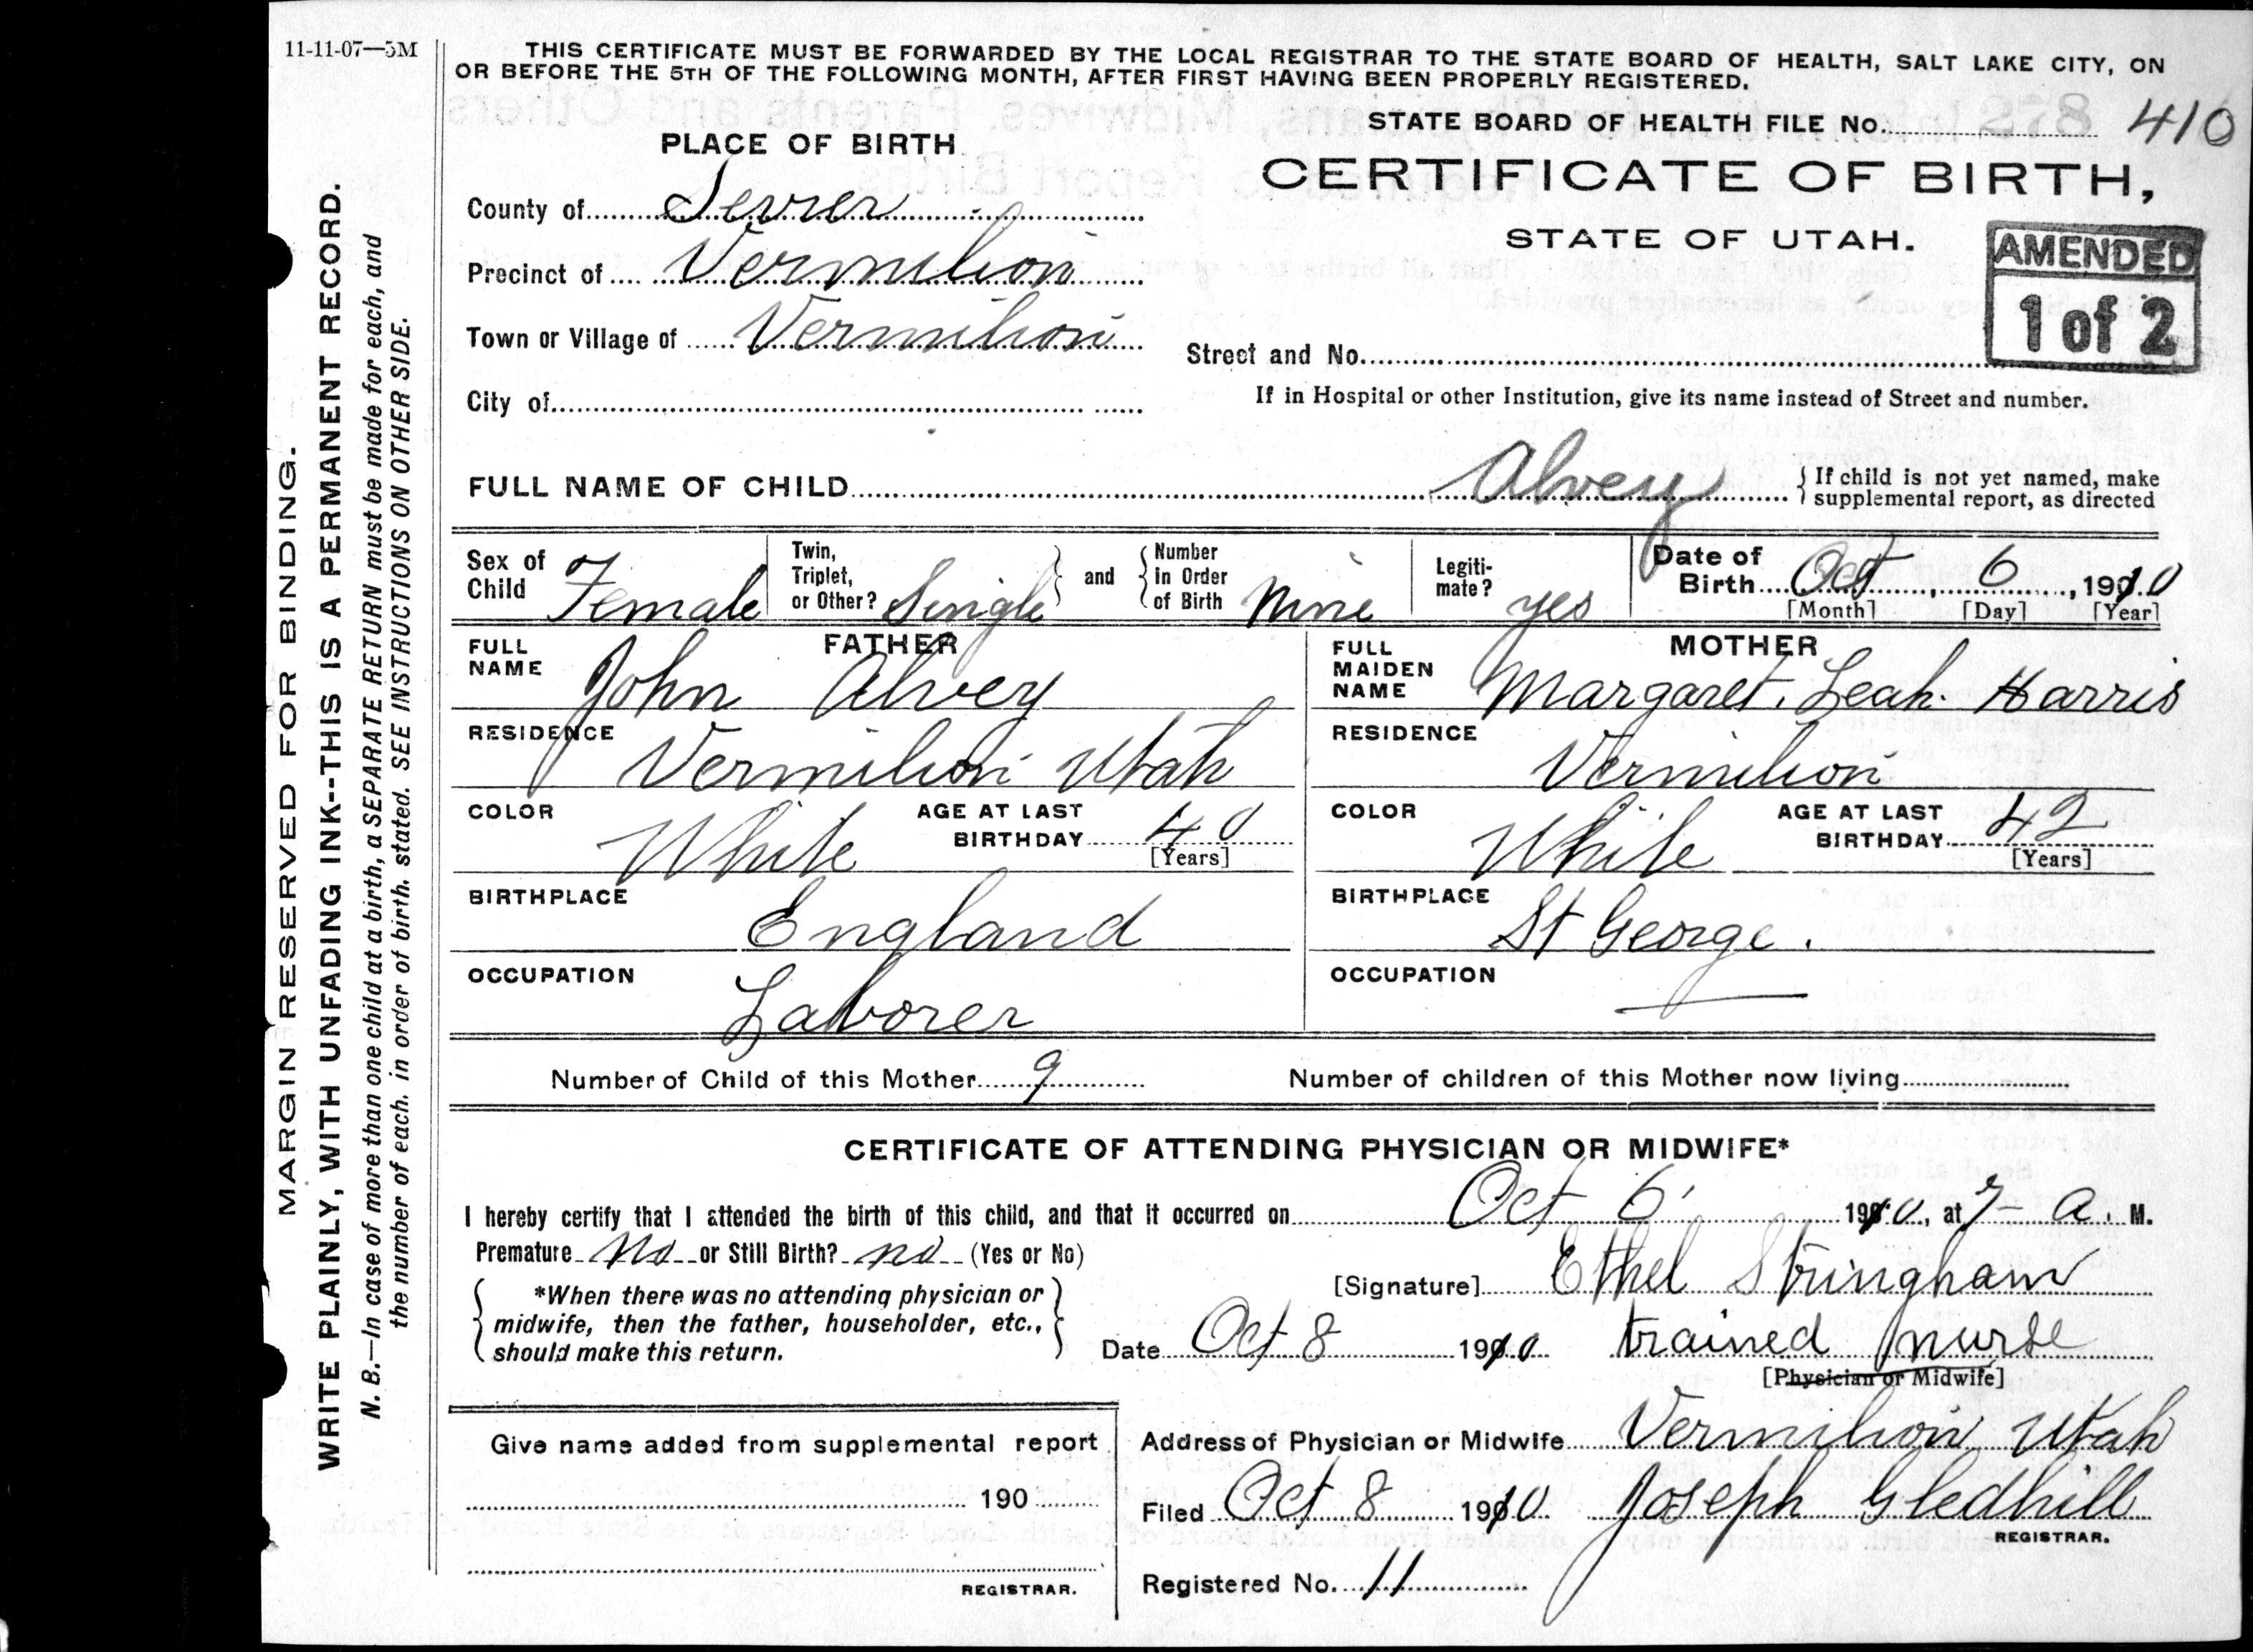 11-11-07—5M
THIS CERTIFICATE MUST BE FORWARDED BY THE LOCAL REGISTRAR TO THE STATE BOARD OF HEALTH, SALT LAKE CITY, ON
OR BEFORE THE 5TH OF THE FOLLOWING MONTH, AFTER FIRST HAVING BEEN PROPERLY REGISTERED.
STATE BOARD OF HEALTH FILE No. 278 410
PLACE OF BIRTH
CERTIFICATE OF BIRTH,
STATE OF UTAH.
AMENDED
1 of 2
County of Sevier
Precinct of Vermilion
Town or Village of Vermilion
Street and No.
City of
If in Hospital or other Institution, give its name instead of Street and number.
FULL NAME OF CHILD Alvey { If child is not yet named, make
supplemental report, as directed
Sex of Child Female
Twin, Triplet, or Other? Single } and { Number in Order of Birth Nine
Legiti-mate? yes
Date of Birth Oct 6, 1910
[Month] [Day] [Year]
FATHER
FULL NAME John Alvey
MOTHER
FULL MAIDEN NAME Margaret. Leah. Harris
RESIDENCE Vermilion Utah
RESIDENCE Vermilion
COLOR White AGE AT LAST BIRTHDAY 40 [Years]
COLOR White AGE AT LAST BIRTHDAY 42 [Years]
BIRTHPLACE England
BIRTHPLACE St George.
OCCUPATION Laborer
OCCUPATION —
Number of Child of this Mother 9 Number of children of this Mother now living
CERTIFICATE OF ATTENDING PHYSICIAN OR MIDWIFE*
I hereby certify that I attended the birth of this child, and that it occurred on Oct 6 1910, at 7 – a. M.
Premature No or Still Birth? no (Yes or No)
*When there was no attending physician or
midwife, then the father, householder, etc.,
should make this return.
[Signature] Ethel Stringham
Date Oct 8 1910 trained nurse
[Physician or Midwife]
Give name added from supplemental report
190
REGISTRAR.
Address of Physician or Midwife Vermilion Utah
Filed Oct 8 1910 Joseph Gledhill
REGISTRAR.
Registered No. 11
MARGIN RESERVED FOR BINDING.
WRITE PLAINLY, WITH UNFADING INK--THIS IS A PERMANENT RECORD.
N. B.—In case of more than one child at a birth, a SEPARATE RETURN must be made for each, and
the number of each, in order of birth, stated. SEE INSTRUCTIONS ON OTHER SIDE.